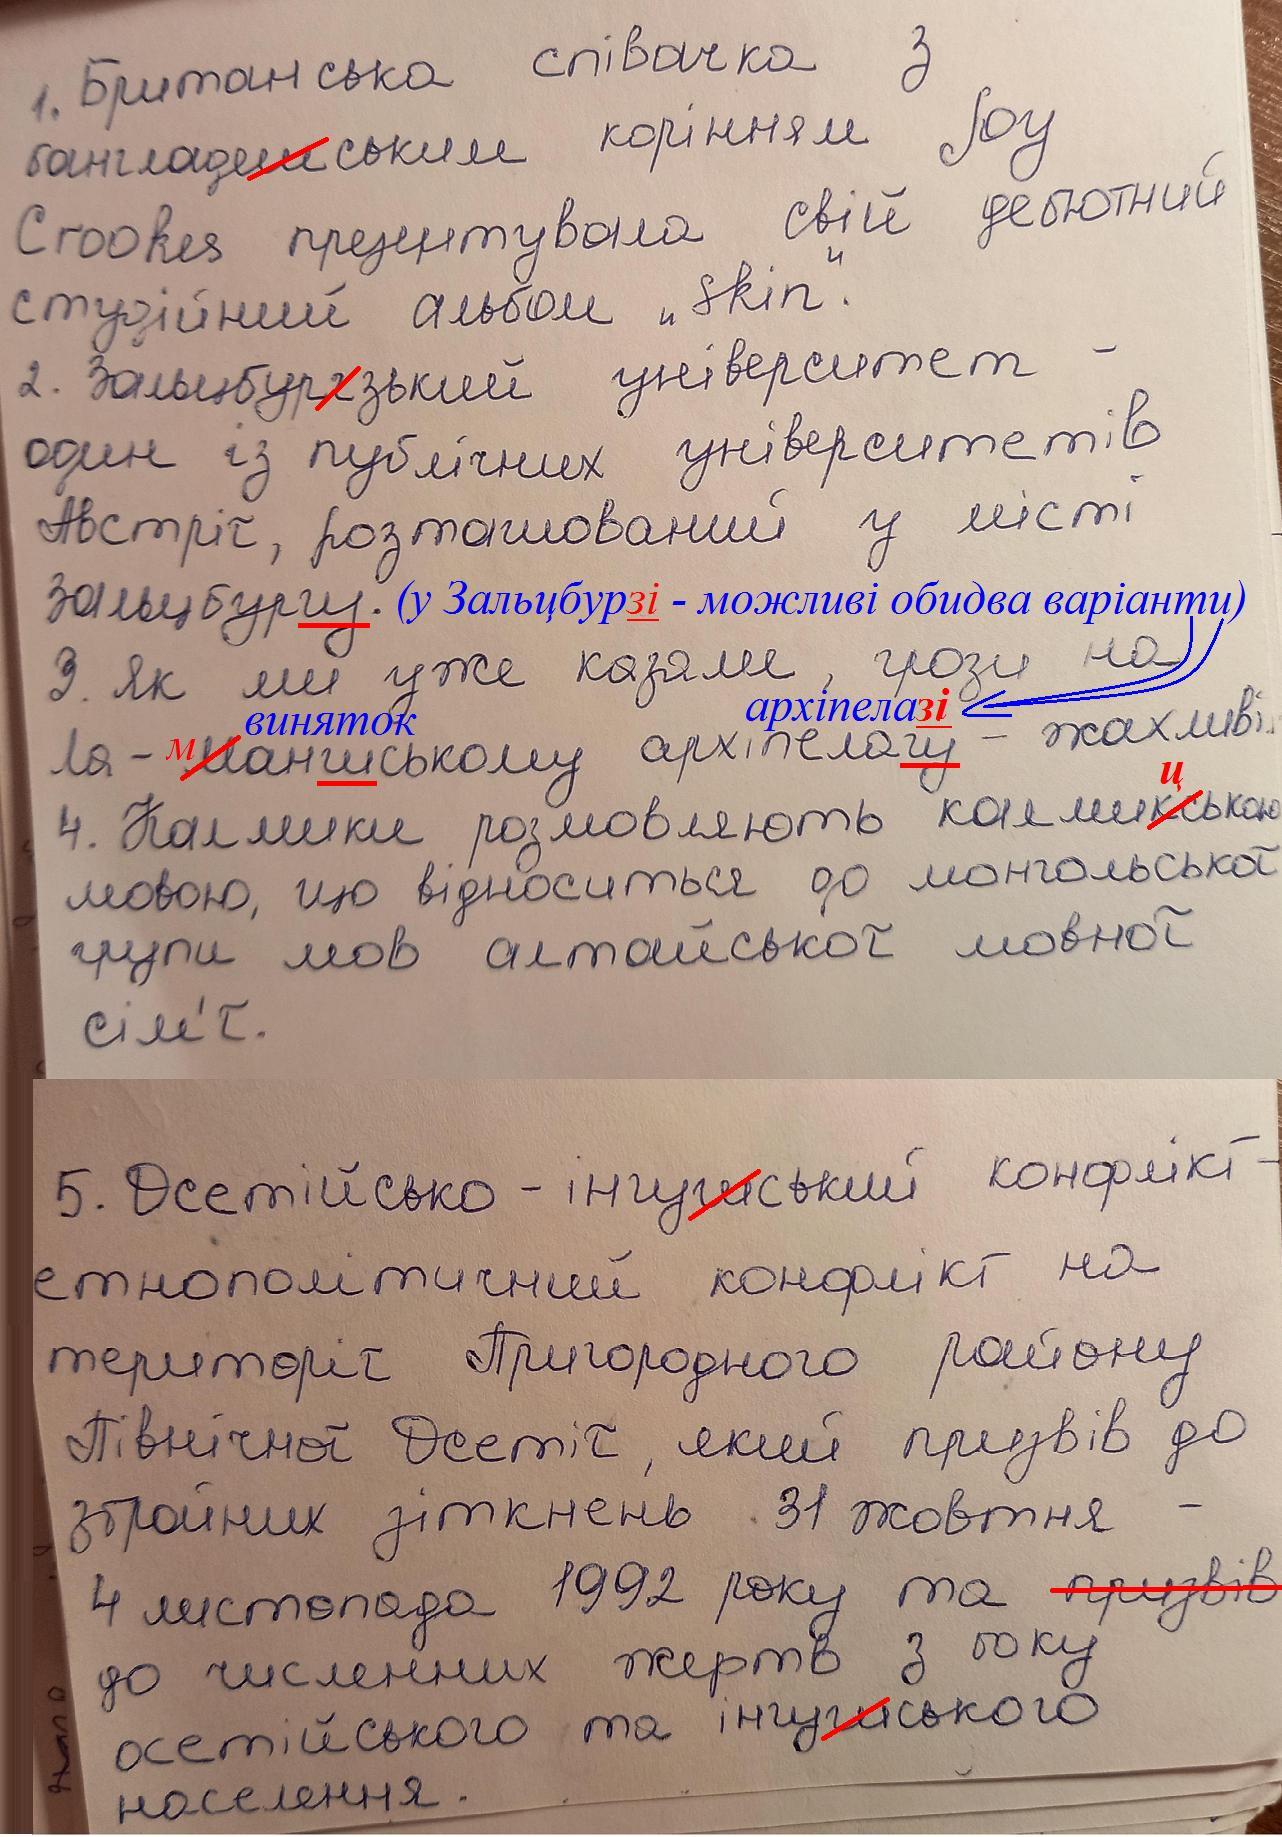 1. Британська співачка з
бангладешським корінням Joy
Crookes презентувала свій дебютний
студійний альбом „Skin".
2. Зальцбургзький університет –
один із публічних університетів
Австрії, розташований у місті
Зальцбургу. (у Зальцбурзі - можливі обидва варіанти)
3. Як ми уже казали, грози на
виняток архіпелазі
Ла – м маншському архіпелагу – жахливі.
ц
4. Калмики розмовляють калмикською
мовою, що відноситься до монгольської
групи мов алтайської мовної
сім'ї.
5. Осетійсько – інгушський конфлікт –
етнополітичний конфлікт на
території Пригородного району
Північної Осетії, який призвів до
збройних зіткнень 31 жовтня –
4 листопада 1992 року та призвів
до численних жертв з боку
осетійського та інгушського
населення.